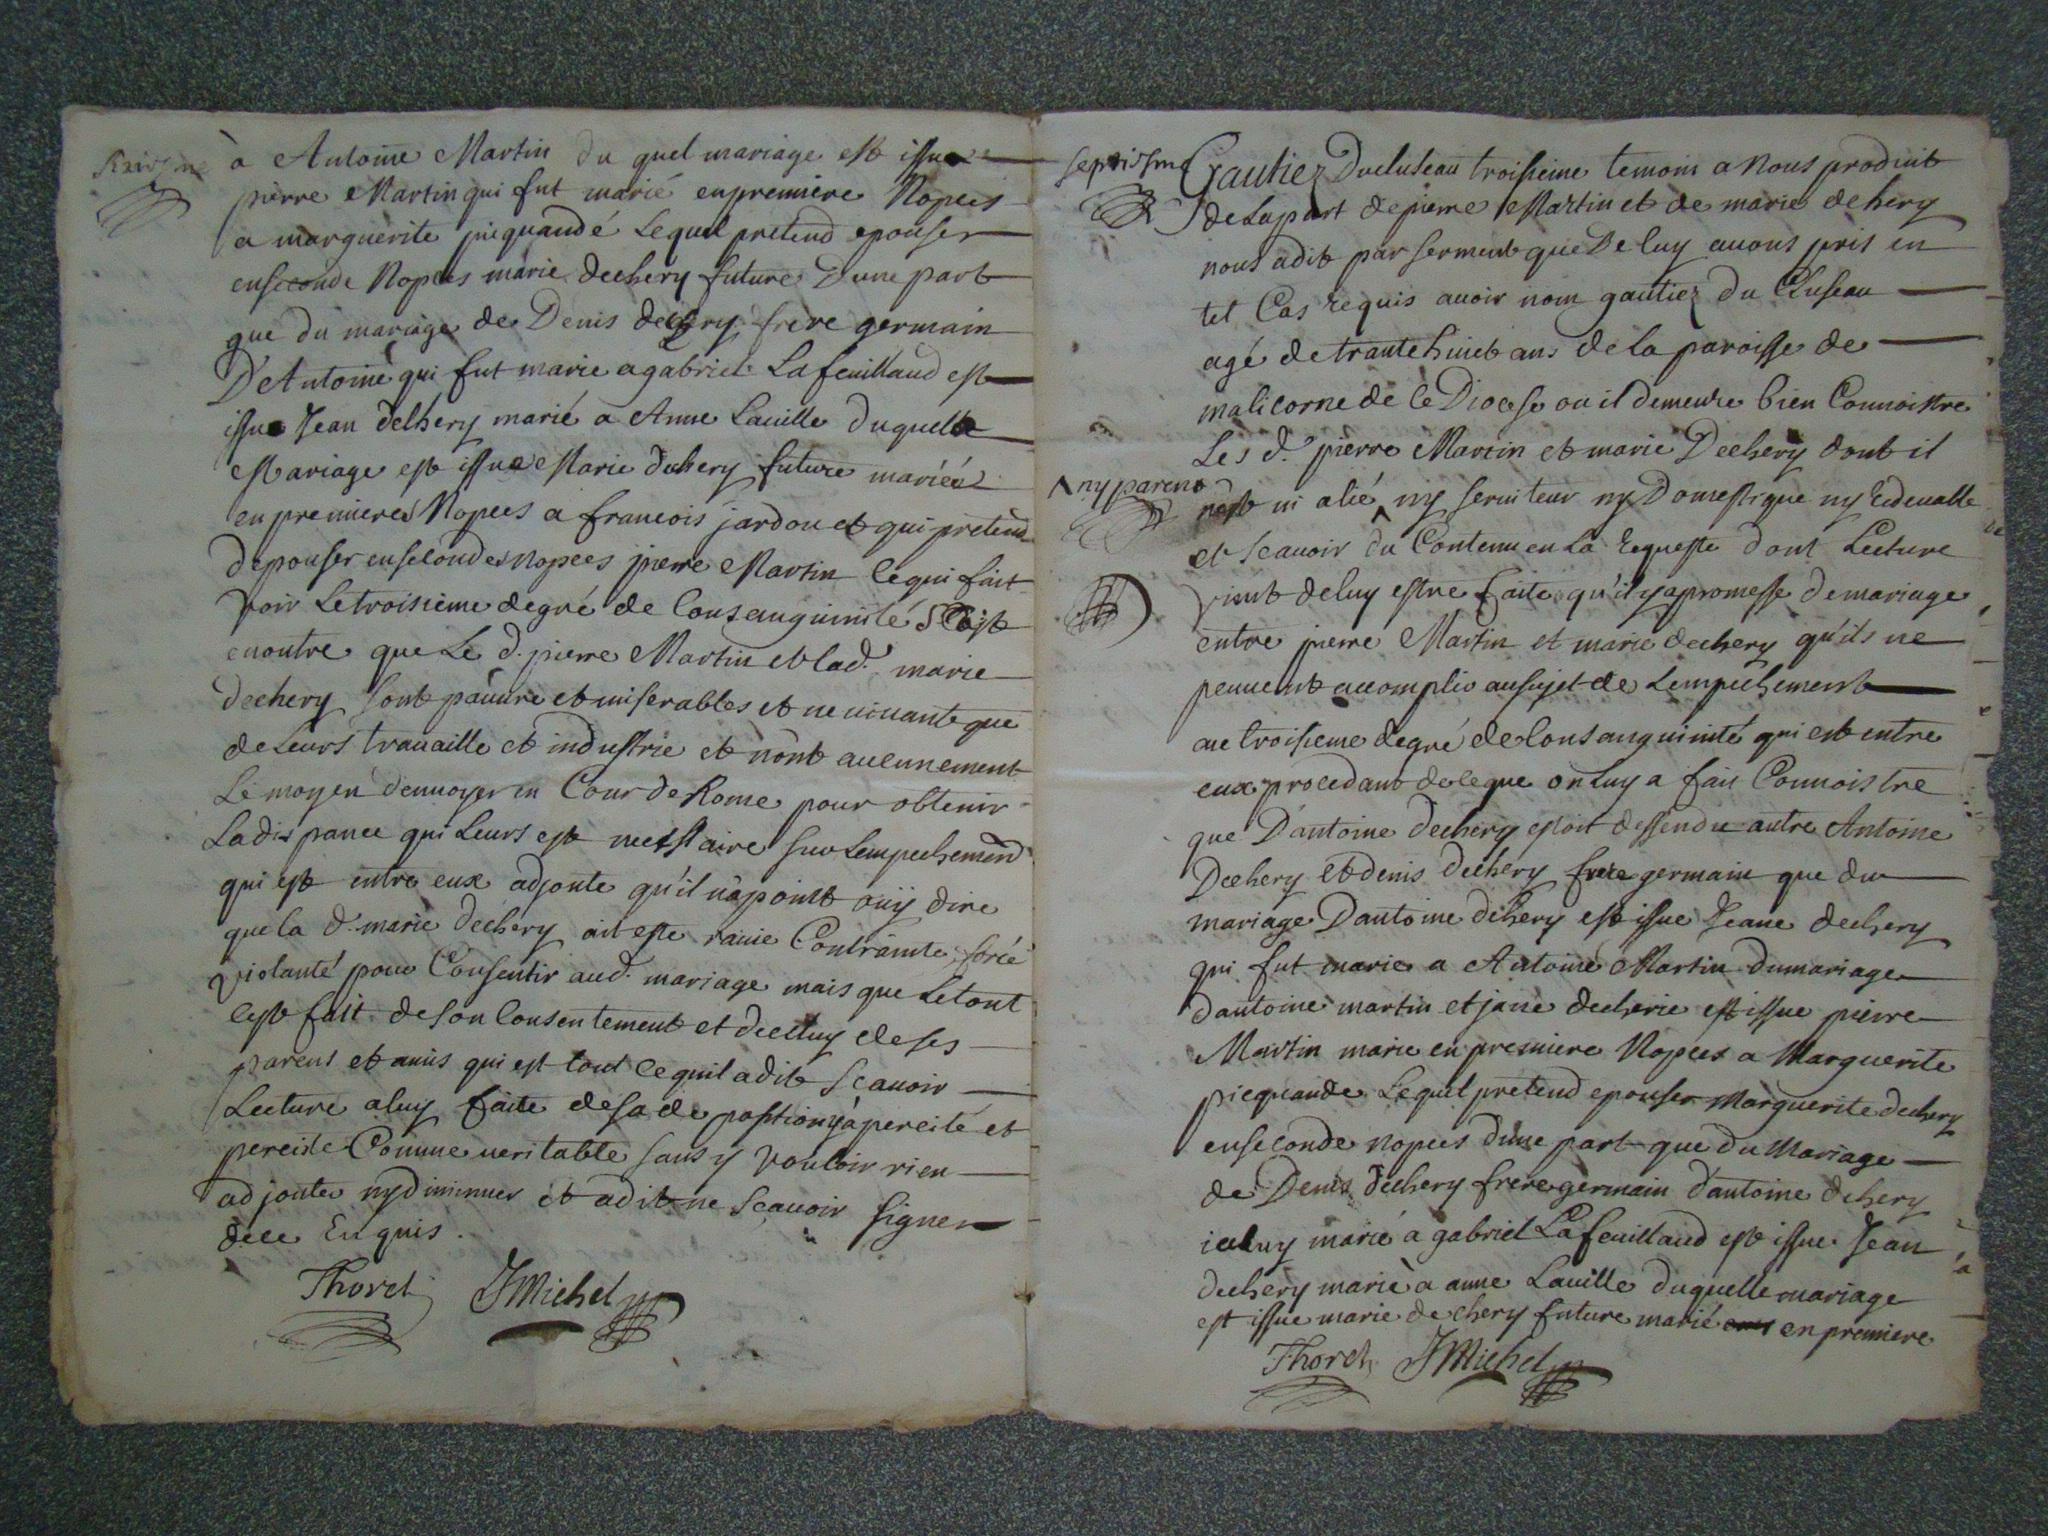 Sixiesme
à Antoine Martin du quel mariage est issue
pierre Martin qui fut marié enpremiere Nopces
a marguerite picquandé Lequel pretend epouser
enseconde Nopces marie dechery future D'une part
que du mariage de Denis dechery frere germain
D'Antoine qui fut marie a gabriel Lafeuillaud est
issue Jean delhery marié a Anne Lauille duquelle
Mariage est issue Marie dechery future mariéé
en premieres Nopces a francois jardon et qui pretend
d'epouser ensecondes nopces pierre Martin ce qui fait
voir Letroisieme degré de Consanguinité scait
enoutre que Le d. pierre Martin et lad. marie
dechery sont pauure et miserables et ne uiuante que
de Leurs trauaille et industrie et n'ont aucunnement
Le moyen d'enuoyer en Cour de Rome pour obtenir
La dispance qui Leurs est necessaire sur Lempechement
qui est entre eux adjoute qu'il n'a point ouy dire
que la d. marie dechery ait este rauie Contrainte forcé
violanté pour Consentir aud. mariage mais que Letout
cest fait de son Consentement et decelluy deses
parens et amis qui est tout cequil adit scauoir
Lecture aluy faite desa depostion y a percité et
perciste Comme ueritable sans y vouloir rien
adjouter ny diminuer et adit ne scauoir signer
dece Enquis.
Thoret JMichel
septiesme
Gautier Ducluseau troisieme temoin a Nous produit
de Lapart de pierre Martin et de marie dehery
nous adit par serment que De luy auons pris en
tel Cas requis auoir nom gautier du Cluseau
agé de trante huict ans de la paroisse de
malicorne de ce Diocese ou il demeure bien Connoistre
Les d. pierre Martin et marie Dechery dont il
ny parens
nest ni alié ny seruiteur ny Domestique ny Redeuable
et scauoir du Contenu en La requeste dont Lecture
vient deluy estre faite qu'il y a promesse de mariage
entre pierre Martin et marie dechery qu'ils ne
peuuent accomplir ausujet de Lempechement
au troisieme degré de Consanguinité qui est entre
eux procedant de ce que on Luy a fait Connoistre
que D'antoine dechery estoit dessendu autre Antoine
Dechery et denis dechery frere germain que du
mariage Dantoine dehery est issue Jeane dechery
qui fut marie a Antoine Martin dumariage
dantoine martin et jane decherie est issue pierre
Martin marie en premiere Nopces a Marguerite
picquande Lequel pretend epouser Marguerite dechery
enseconde nopces d'une part que du Mariage
de Denis dechery frere germain d'antoine dehery
iceluy marié a gabriel Lafeuillaud est issue Jean
dechery marié a anne Lauille duquelle mariage
est issue marie de chery future marié en premiere
Thoret JMichel